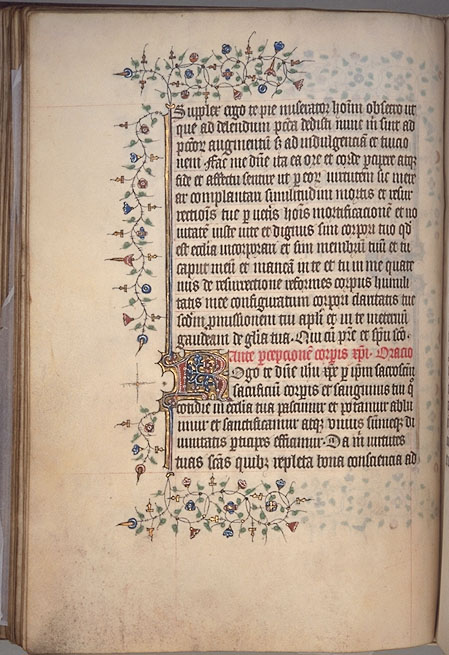 Supplex ergo te pie miserator hoīm obsecro ut
que ad delendum pctā dedisti nunc m̄ sint ad
pctōr augmentum s̄ ad indulgenciā et tuicio
nem ffac me dn̄e ita ea ore et corde pcipere atqꝫ
fide et affectu sentire ut p eor virtutem sic mere
ar complantari similitudini mortis et resur
rectiōis tue p veteris hoīs mortificacionē et no
uitatē iuste uite et dignus sim corpori tuo qd
est ecclīa incorporari et sim membrū tuū et tu
caput meū et maneā in te et tu in me quate
nus de resurrectione reformes corpus humili
tatis mee configuratum corpori claritatis tue
scdm pmissionem tui aplī et in te
gaudeam de glīa tua. Qui cū prē et spū scō.
Ante pcepcionē corpis xpī. Oracio
Rogo te dn̄e ihū xpē p ipm̄ sacroscm̄
sacrificiū corpis et sanguinis tui q
cotidie in ecclīa tua pascimur et potamur ablu
imur et sanctificamur atqꝫ unius summeqꝫ di
uinitatis pticipes efficimur. Da m̄ virtutes
tuas scās quibꝫ repleta bona consciencia ad